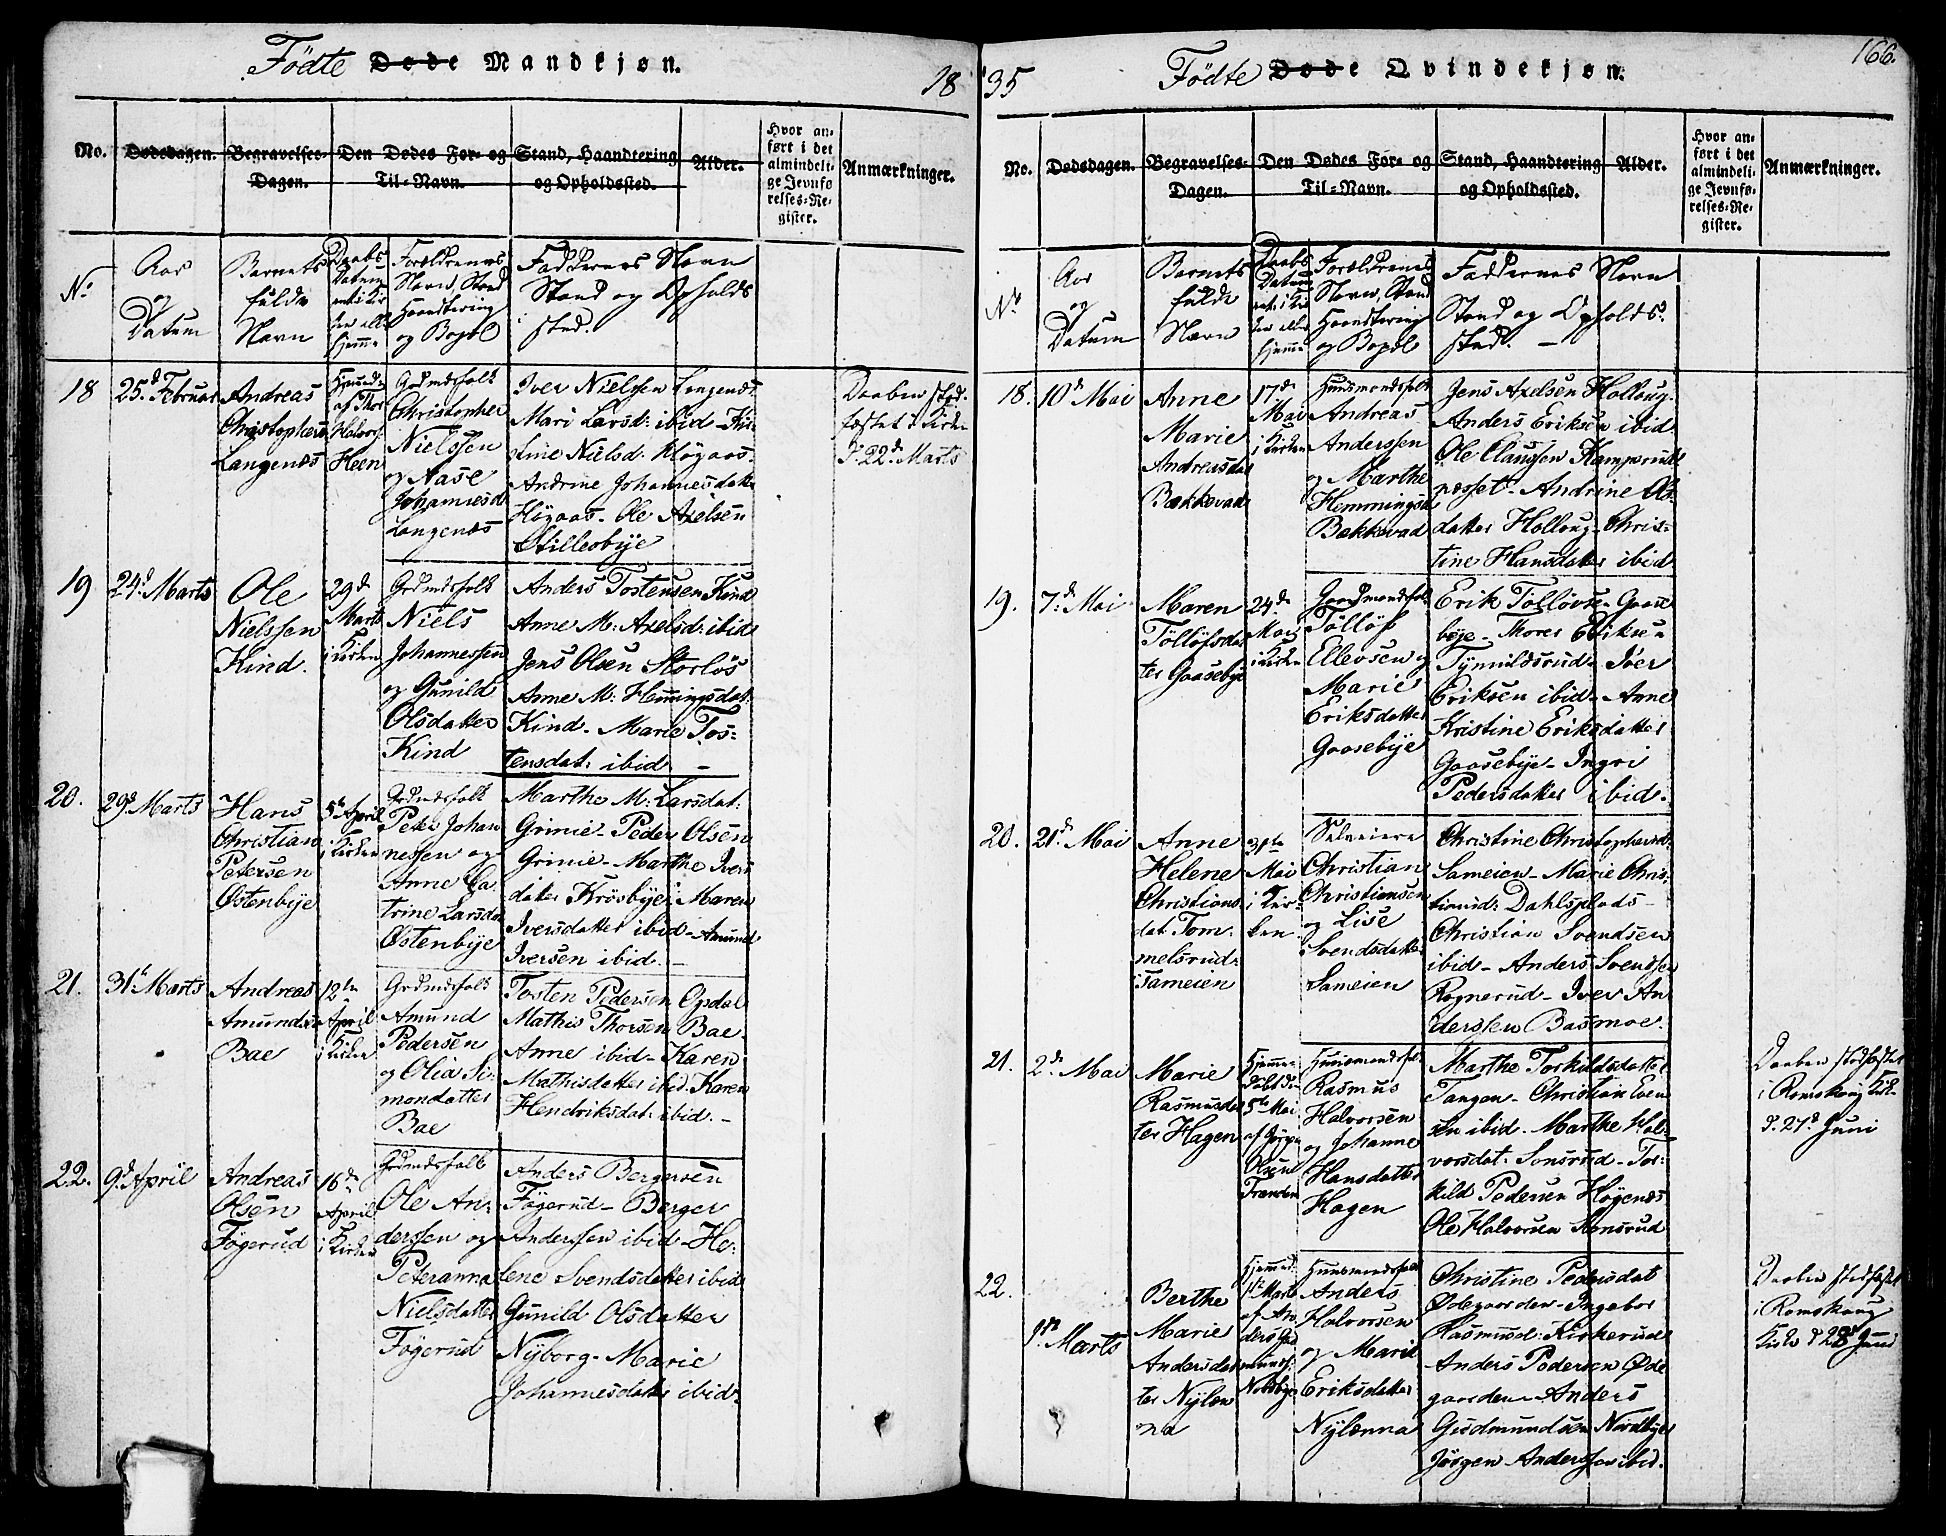 Fødte Døde Mandkjøn.
18
No.
Dødsdagen.
Begravelses-
Dagen.
Den Dødes For- og
Til-Navn.
Stand, Haandtering
og Opholdssted.
Alder.
Hvor an-
ført i det
almindeli-
ge Jevnfø
relses-Re-
gister.
Anmærkninger.
No
Aar
og
Datum
Barnets
fulde
Navn
Daabs
Datum
enten i Kir
ken eller
hjemme
Forældrenes
Navn, Stand
Haandtering
og Bopæl
Faddernes Navn
Stand og Opholds
sted.
18
25d Februar
Andreas
Christophers
Langenæs
Hjemmed.
af Thor
Halvors:
Heen
Grdmdsfolk
Christopher
Nielssen
og Aase
Johannesd
Langenæs
Iver Nielssen Langenæs
Mari Larsd: ibid - Kir-
stine Nielsd: Høgaas.
Andrine Johannesdatt
Høgaas - Ole Axelsen
 Østlerbye
Daaben stad-
fæstet i Kirken
d: 22d Marts
19
24d Marts
Ole
Nielssen
Kind.
29d
Marts
i Kirken
Grdmdsfolk
Niels
Johannessen
og Gunild
Olsdatter
Kind
Anders Tostensen Kind
Anne M: Axelsd: ibid
Jens Olsen Storløs
Anne M: Hemingsdat:
Kind - Marie Tos-
tensdat: ibid -
20.
29d Marts
Hans
Christian
Petersen
Østenbye
5te April
i Kirken
Grdmdsfolk
Peter Johan
nessen og
Anne Ca-
trine Larsda
Østenbye
Marthe M: Larsdat:
Grimie - Peder Olsen
Grimie - Marthe Ivers
datter Krosbye - Maren
Iversdatter ibid - Amund
Iversen ibid. -
21.
31te Marts
Andreas
Amundsen
Bae
12te
April
i Kirken
Grdmdsfolk
Amund
Pedersen
og Olia Si-
mondatter
Bae
Tosten Pedersen Opdal
Mathis Thorsen Bae -
Anne ibid - Karen
Mathisdatter ibid. Karen
Hendriksdat: ibid. -
22.
9d April
Andreas
Olsen
Føgerud
16d
April
i Kirken
Grdmdsfolk
Ole An-
derssen og
Peteranna
Nielsdatter
Føgerud
Anders Bergersen
Føgerud - Berger
Anderssen ibid - He-
lene Svendsdatter ibid
Gunild Olsdatter
Nyborg - Marie
Johannesdatter ibid.
166.
35
Fødte Døde Qvindekjøn.
No.
Dødsdagen.
Begravelses-
Dagen.
Den Dødes For- og
Til-Navn.
Stand, Haandtering
og Opholdssted.
Alder.
Hvor an-
ført i det
almindeli-
ge Jevnfø-
relses-Re-
gister.
Anmærkninger.
No
Aar
og
Datum
Barnets
fulde
Navn
Daabs
Datum
ent. i Kir
ken eller
hjemme
Forældrenes
Navn, Stand
Haandtering
og Bopæl
Faddernes Navn
Stand og Opholds-
sted. -
18.
10d Mai
Anne
Marie
Andreasdat
Bækkevad
17de
Mai
i Kirken
Huusmandsfolk
Andreas
Anderssen
og Marthe
Hemmingsd
Bækkevad
Jens Axelsen Holloug.
Anders Eriksen ibid.
Ole Claussen Kamperud
pladset - Andrine Ols
datter Holloug - Chris-
tine Hansdatter ibid
19.
7d Mai
Maren
Tølløfsdat
ter Gaasebye
24de
Mai
i Kirken
Gaardmandsfolk
Tølløf
Ellevsen og
Marie
Eriksdatter
Gaasebye
Erik Tølløvs. Gaase
bye - Thorer Eriksen
Tymildsrud - Iver
Eriksen ibid - Anne
Kristine Eriksdatter
Gaasebye - Ingri
Pedersdatter ibid.
20.
21d Mai
Anne
Helene
Christians
dat Tom-
melsrud:
Sameien
31te
Mai
i Kir-
ken
Selveiere
Christian
Christiansen
og Lise
Svendsdatter
Sameien
Christine Christophersd:
Sameien - Marie Chris-
tiansd: Dahlsplads -
Christian Svendsen
ibid - Anders Svendsen
Rognerud - Iver An
derssen Basmoe.
21.
2d Mai
Marie
Rasmusdat
ter Hagen
Hjemme
døbt d:
5te Mai
af Jørgen
Olsen
Trandem
Huusmandsfolk
Rasmus
Halvorsen
og Johanne
Hansdatter
Hagen
Marthe Torkildsdatter
Tangen - Christian Even
sen ibid. Marthe Hal-
vorsdat: Sonsrud - Tor-
kild Pedersen Høgenæs
Ole Halvorsen Sonsrud
Daaben stadfæstet
i Romskoug Kirk
d. 27d Juni
22.
1te Marts
Berthe
Marie
Andersdat
ter Nylæn
na
Hjemmed:
1te Marts
af An
ders Gud
munds:
Nordbye
Huusmandsfolk
Anders
Halvorsen
og Marie
Eriksdatter
Nylænna
Christine Pedersdat
Ødegaarden - Ingebor
Rasmusd: Kirkerud
Anders Pedersen Øde
gaarden - Anders
Gudmundsen Nordbye
Jørgen Anderssen ibid.
Daaben stadfæstet
i Romskoug
Kirke d 28d Juni